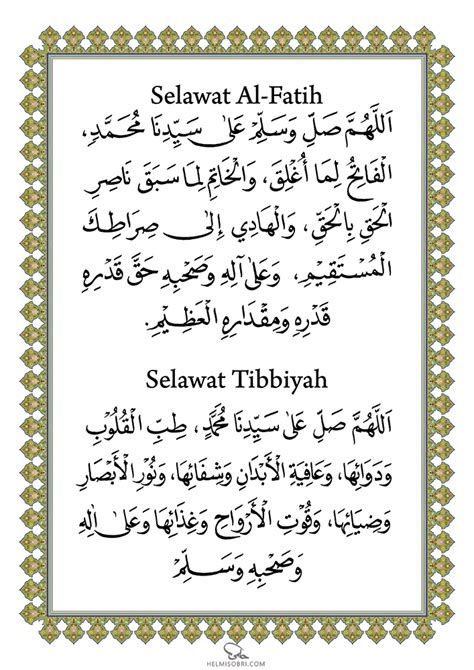 Selawat Al-Fatih
اَللَّهُمَّ صَلِّ وَسَلِّمْ عَلَىٰ سَيِّدِنَا مُحَمَّدٍ،
الْفَاتِحُ لِمَا أُغْلِقَ، وَالْخَاتِمِ لِمَا سَبَقَ نَاصِرِ
الْحَقِّ بِالْحَقِّ، وَالْهَادِي إِلَىٰ صِرَاطِكَ
الْمُسْتَقِيْمِ، وَعَلَىٰ آلِهِ وَصَحْبِهِ حَقَّ قَدْرِهِ
قَدْرِهِ وَمِقْدَارِهِ الْعَظِيْمِ.
Selawat Tibbiyah
اَللَّهُمَّ صَلِّ عَلَىٰ سَيِّدِنَا مُحَمَّدٍ، طِبِّ الْقُلُوْبِ
وَدَوَائِهَا، وَعَافِيَةِ الْأَبْدَانِ وَشِفَائِهَا، وَنُوْرِ الْأَبْصَارِ
وَضِيَائِهَا، وَقُوْتِ الْأَرْوَاحِ وَغِذَائِهَا وَعَلَىٰ اٰلِهِ
وَصَحْبِهِ وَسَلِّمْ
HELMISOBRI.COM